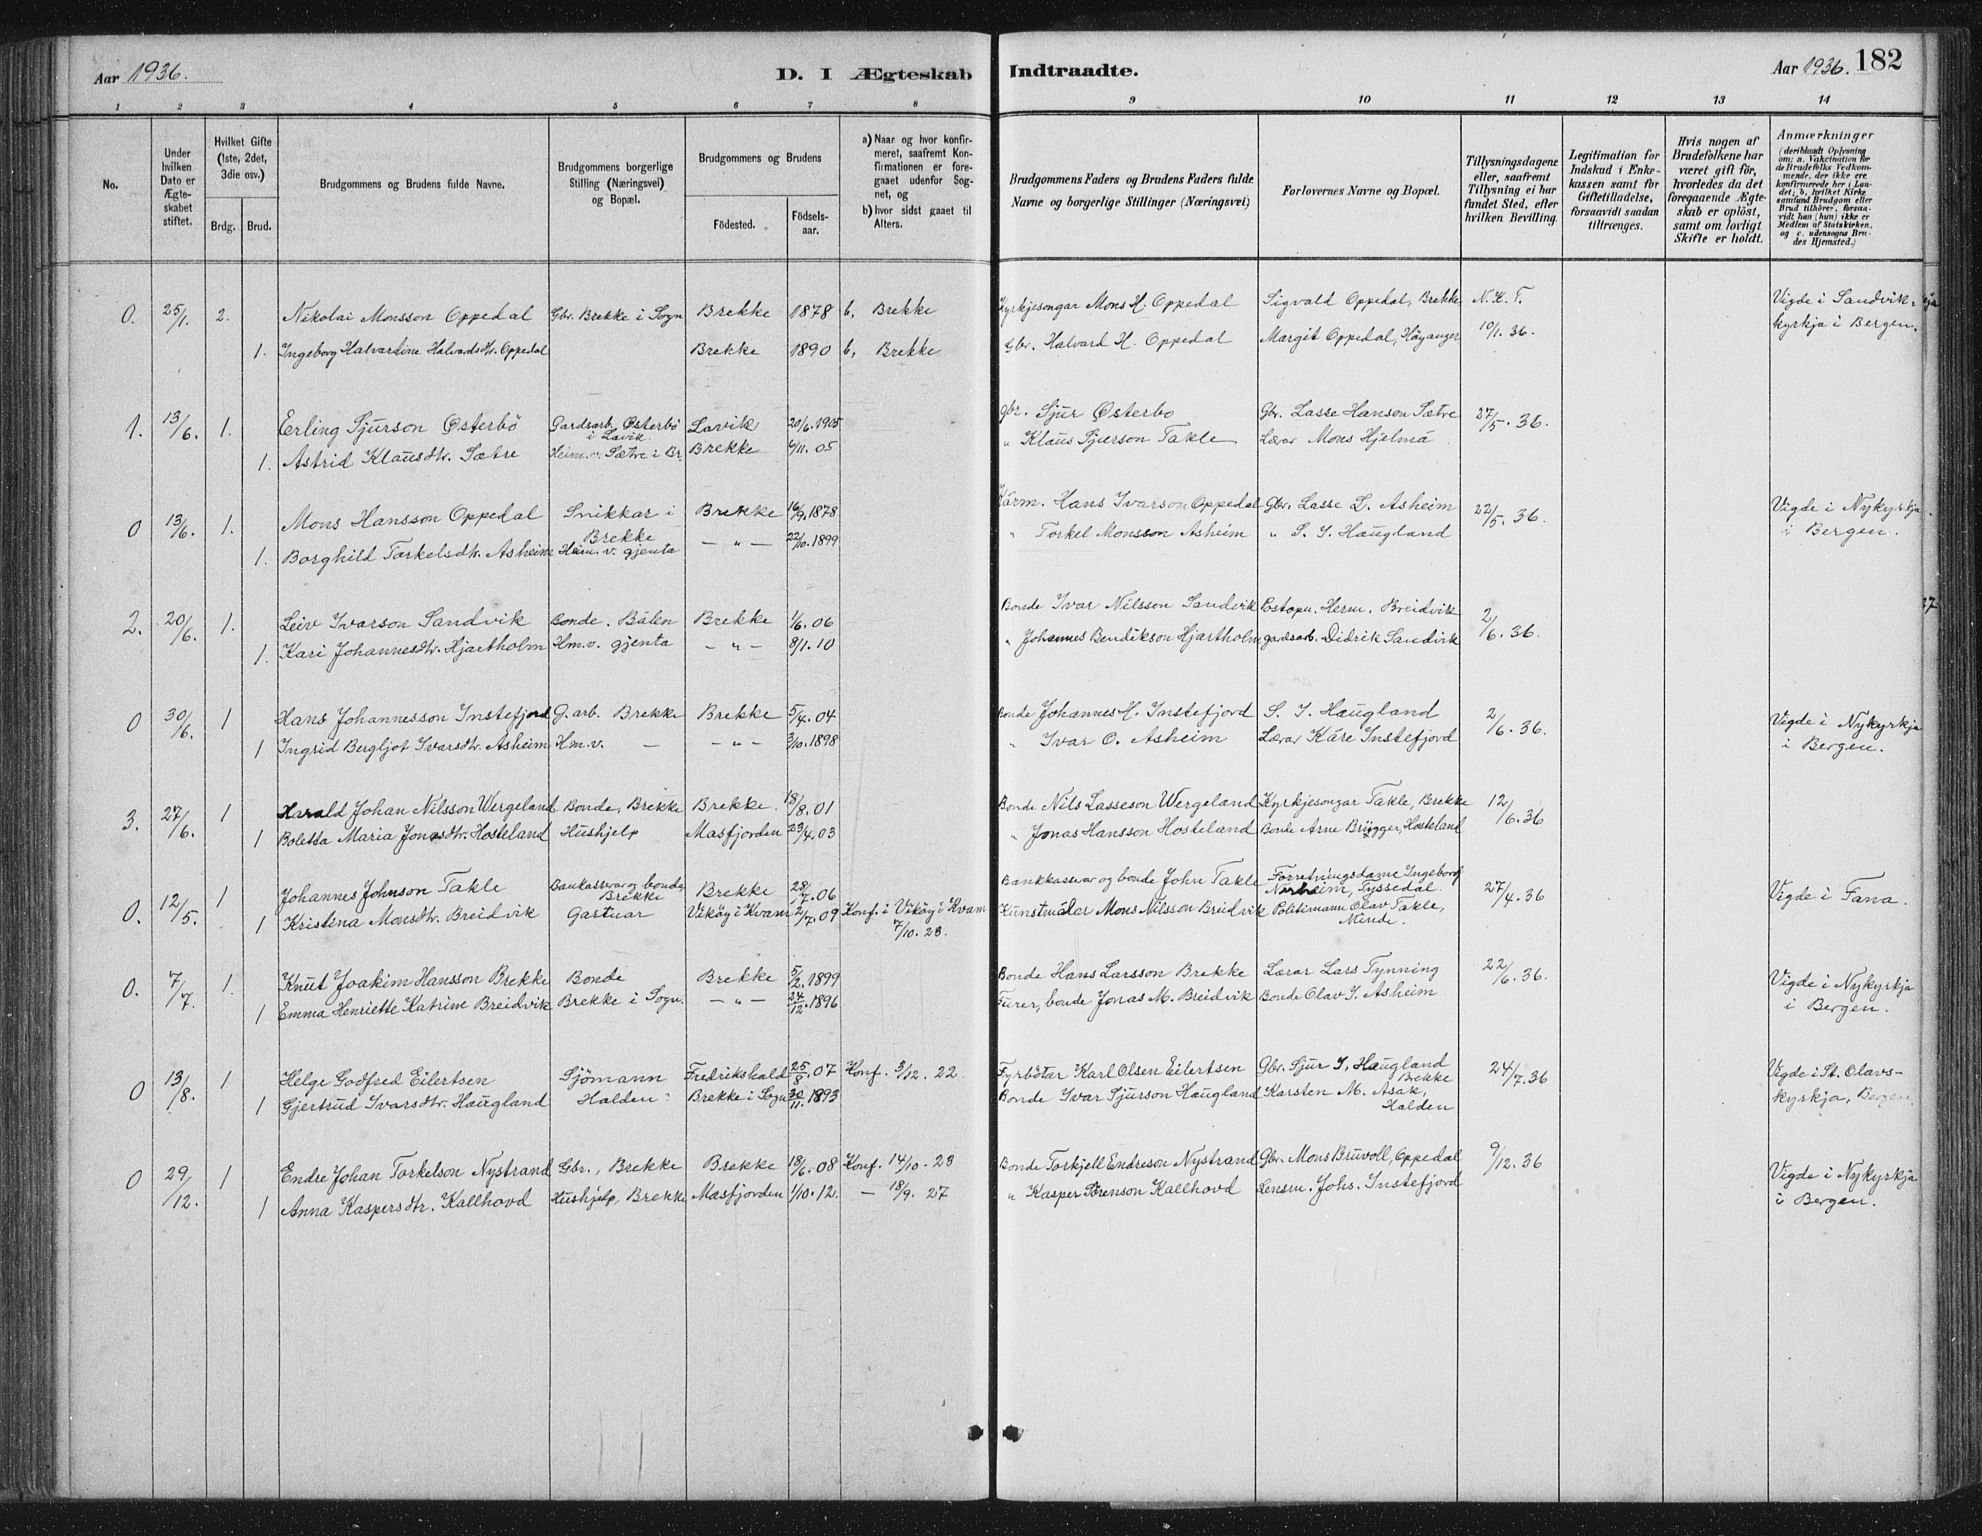 Aar 1936.
D. I Ægteskab
Indtraadte.
Aar 1936. 182
1 2 3 4 5 6 7 8
9 10 11 12 13 14
No.
Under hvilken Dato er Ægte-skabet stiftet.
Hvilket Gifte (1ste, 2det, 3die osv.)
Brdg. Brud.
Brudgommens og Brudens fulde Navne.
Brudgommens borgerlige Stilling (Næringsvei) og Bopæl.
Brudgommens og Brudens
Fødested. Fødsels-aar.
a) Naar og hvor konfir-meret, saafremt Kon-firmationen er fore-gaaet udenfor Sog-net, og
b) hvor sidst gaaet til Alters.
Brudgommens Faders og Brudens Faders fulde Navne og borgerlige Stillinger (Næringsvei)
Forlovernes Navne og Bopæl.
Tillysningsdagene eller, saafremt Tillysning ei har fundet Sted, efter hvilken Bevilling.
Legitimation for Indskud i Enke-kassen samt for Giftetilladelse, forsaavidt saadan tiltrænges.
Hvis nogen af Brudefolkene har været gift før, hvorledes da det foregaaende Ægte-skab er opløst, samt om lovligt Skifte er holdt.
Anmærkninger
(deriblandt Oplysning om: a. Vakcination for de Brudefolks Vedkom-mende, der ikke ere konfirmerede her i Lan-det; b. hvilket Kirke samfund Brudgom eller Brud tilhører, forsaa-vidt han (hun) ikke er Medlem af Statskirken, og c. udensogns Bru-des Hjemsted.)
0. 25/1. 2. Nikolai Monsson Oppedal Gbr. Brekke i Sogn Brekke 1878 b, Brekke Kyrkjesongar Mons H. Oppedal Sigvald Oppedal, Brekke N. K. T. Vigde i Sandvik-
1. Ingeborg Halvartine Halvardsdtr. Oppedal Brekke 1890 b, Brekke Gbr. Halvard H. Oppedal Margit Oppedal, Höyanger 10/1. 36. kyrkja i Bergen.
1. 13/6. 1. Erling Sjurson Østerbö Gardsarb. Østerbö i Lavik Lavik 20/6.1905 gbr. Sjur Østerbo Gbr. Lasse Hanson Sætre 27/5. 36.
1. Astrid Klausdtr. Sætre Heim.v. Sætre i Br. Brekke 4/11. 05 " Klaus Sjurson Takle Lærar Mons Hjelmå
0 13/6. 1. Mons Hansson Oppedal Snikkar i Brekke Brekke 16/9.1878 Kårm. Hans Ivarson Oppedal Gbr. Lasse L. Asheim 22/5. 36. Vigde i Nykyrkja
1. Borghild Torkelsdtr. Asheim Heim.v. gjenta — " — 22/10.1899 " Torkel Monsson Asheim " S. I. Haugland i Bergen.
2. 20/6. 1. Leiv Ivarson Sandvik Bonde. Bålen Brekke 1/6. 06 Bonde Ivar Nilsson Sandvik Postopn. Herm. Breidvik 2/6. 36.
1. Kari Johannesdtr. Hjartholm Hm.v. gjenta — " — 8/1. 10 " Johannes Bendikson Hjartholm gardsarb. Didrik Sandvik
0 30/6. 1 Hans Johannesson Instefjord G. arb. Brekke Brekke 5/4. 04 Bonde Johannes H. Instefjord S. I. Haugland 2/6. 36. Vigde i Nykyrkja
1 Ingrid Bergljot Ivarsdtr. Asheim Hm.v. — — " — 3/10. 1898 " Ivar O. Asheim Lærar Kåre Instefjord i Bergen.
3. 27/6. 1 Harald Johan Nilsson Wergeland Bonde, Brekke Brekke. 18/8. 01 Bonde Nils Lasseson Wergeland Kyrkjesongar Takle, Brekke 12/6. 36
1 Boletta Maria Jonasdtr. Hosteland Hushjelp Masfjorden 23/4. 03 " Jonas Hansson Hosteland Bonde Arne Brügger, Hosteland
0. 12/5. 1 Johannes Johnson Takle Bankkasserar og bonde Brekke Brekke 28/7. 06 Bankkasserar og bonde John Takle Forretningsdame Ingeborg Nerheim, Tyssedal. 27/4. 36 Vigde i Fana.
1 Kristina Monsdtr. Breidvik Gartnar Vikøy i Kvam 2/7. 09 Konf. i Vikøy i Kvam 7/10. 23. Kunstmålar Mons Nilsson Breidvik Politimann Olav Takle, Minde.
0. 7/7. 1. Knut Joakim Hansson Brekke Bonde Brekke 5/2. 1899 Bonde Hans Larsson Brekke Lærar Lars Tynning 22/6. 36. Vigde i Nykyrkja
1 Emma Henriette Katrine Breidvik Brekke i Sogn. — " — 24/12. 1896 Furer, bonde Jonas M. Breidvik Bonde Olav I. Asheim i Bergen.
0 13/8. 1 Helge Godfred Eilertsen Sjömann Fredrikshald 25/8. 07 Konf. 3/12. 22. Fyrbötar Karl Olsen Eilertsen Gbr. Sjur I. Haugland Brekke 24/7. 36 Vigde i St. Olavs-
1 Gjertrud Ivarsdtr. Haugland Halden Brekke i Sogn 30/11. 1893 Bonde Ivar Sjurson Haugland Karsten M. Asak, Halden kyrkja, Bergen.
0 29/12. 1 Endre Johan Torkelson Nystrand Gbr., Brekke Brekke 18/6. 08 Konf. 14/10. 23 Bonde Torkjell Endreson Nystrand Gbr. Mons Bruvoll, Oppedal 9/12. 36 Vigde i Nykyrkja
1 Anna Kaspersdtr. Kallhovd Hushjelp, Brekke Masfjorden 1/10. 12. — 18/9. 27 " Kasper Sörenson Kallhovd Lensm. Johs. Instefjord i Bergen.